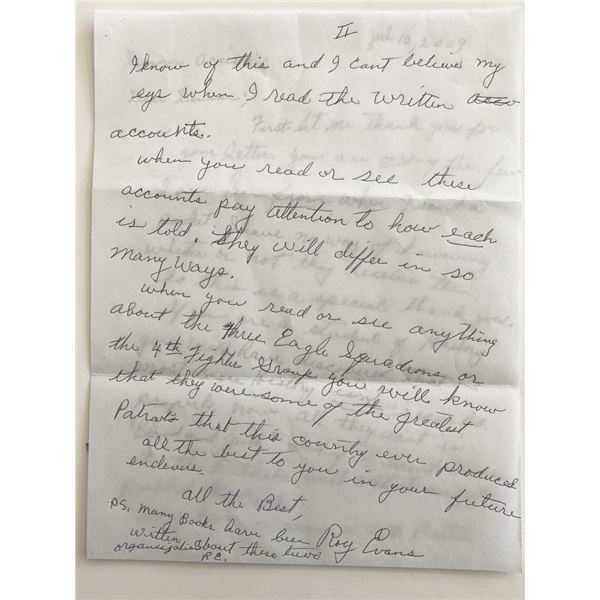 II
I know of this and I cant believe my
eys when I read the written acco
accounts.
when you read or see these
accounts pay attention to how each
is told. They will differ in so
many ways.
when you read or see anything
about the three Eagle Squadrons or
the 4th Fighter Group you will know
that they were some of the greatest
Patriots that this country ever produced
all the best to you in your future
endevers.
all the Best,
Roy Evans
PS, many Books have been
written about these two
organizations
R.E.
Jul 10, 2009
First let me thank you for